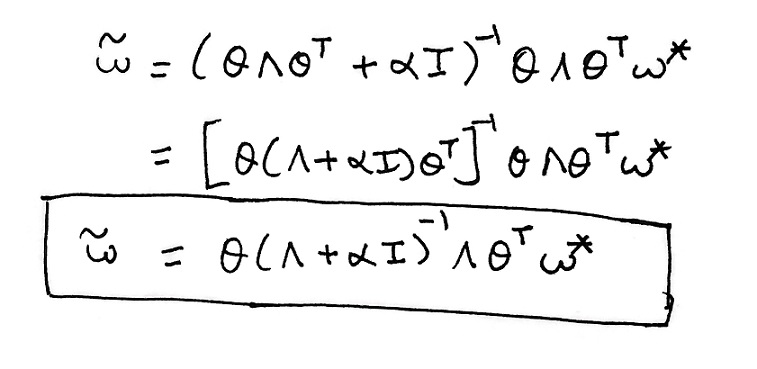 ω̃ = (θΛθᵀ + αI)⁻¹ θΛθᵀω*
= [θ(Λ+αI)θᵀ]⁻¹ θΛθᵀω*
ω̃ = θ(Λ+αI)⁻¹Λθᵀω*